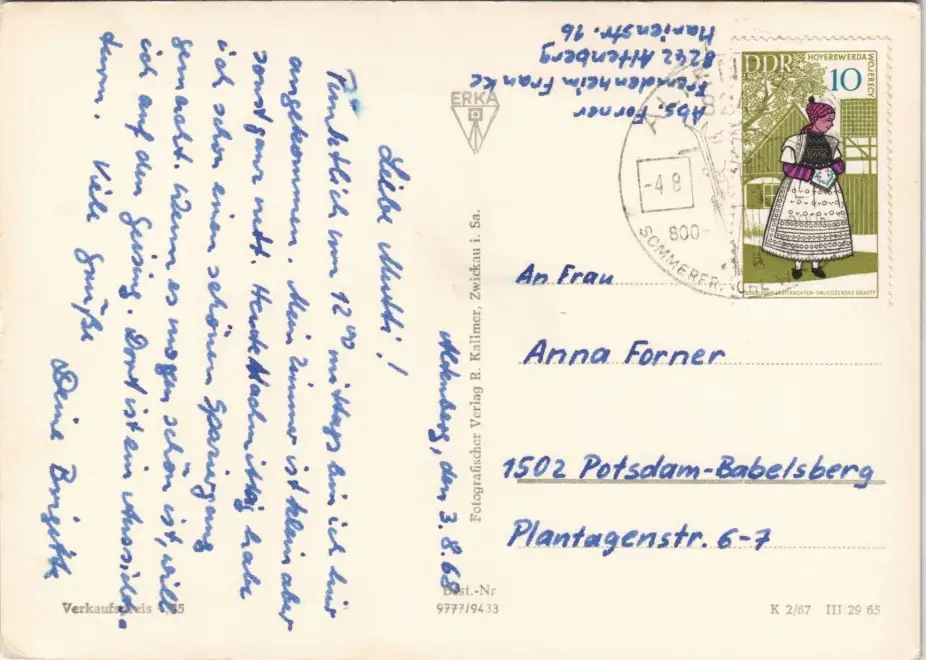 Abs. Forner
Fremdenheim Franke
8242 Altenberg
Marienstr. 16
ERKA
DDR
HOYERSWERDA
WOJERECY
10
-4 8
800-
SOMMERFRISCHE
An Frau
Anna Forner
1502 Potsdam-Babelsberg
Plantagenstr. 6-7
Altenberg, den 3.8.68
Liebe Mutti!
Pünktlich um 12⁰⁰ mittags bin ich hier
angekommen. Mein Zimmer ist klein aber
sonst ganz nett. Heute Nachmittag habe
ich schon einen schönen Spaziergang
gemacht. Wenn es morgen schön ist, will
ich auf den Geising. Dort ist ein Aussichts-
turm. Viele Grüße
Deine Brigitte
Fotografischer Verlag R. Kallmer, Zwickau i. Sa.
Verkaufspreis
Best.-Nr
9777/9433
K 2/67 III/29 65